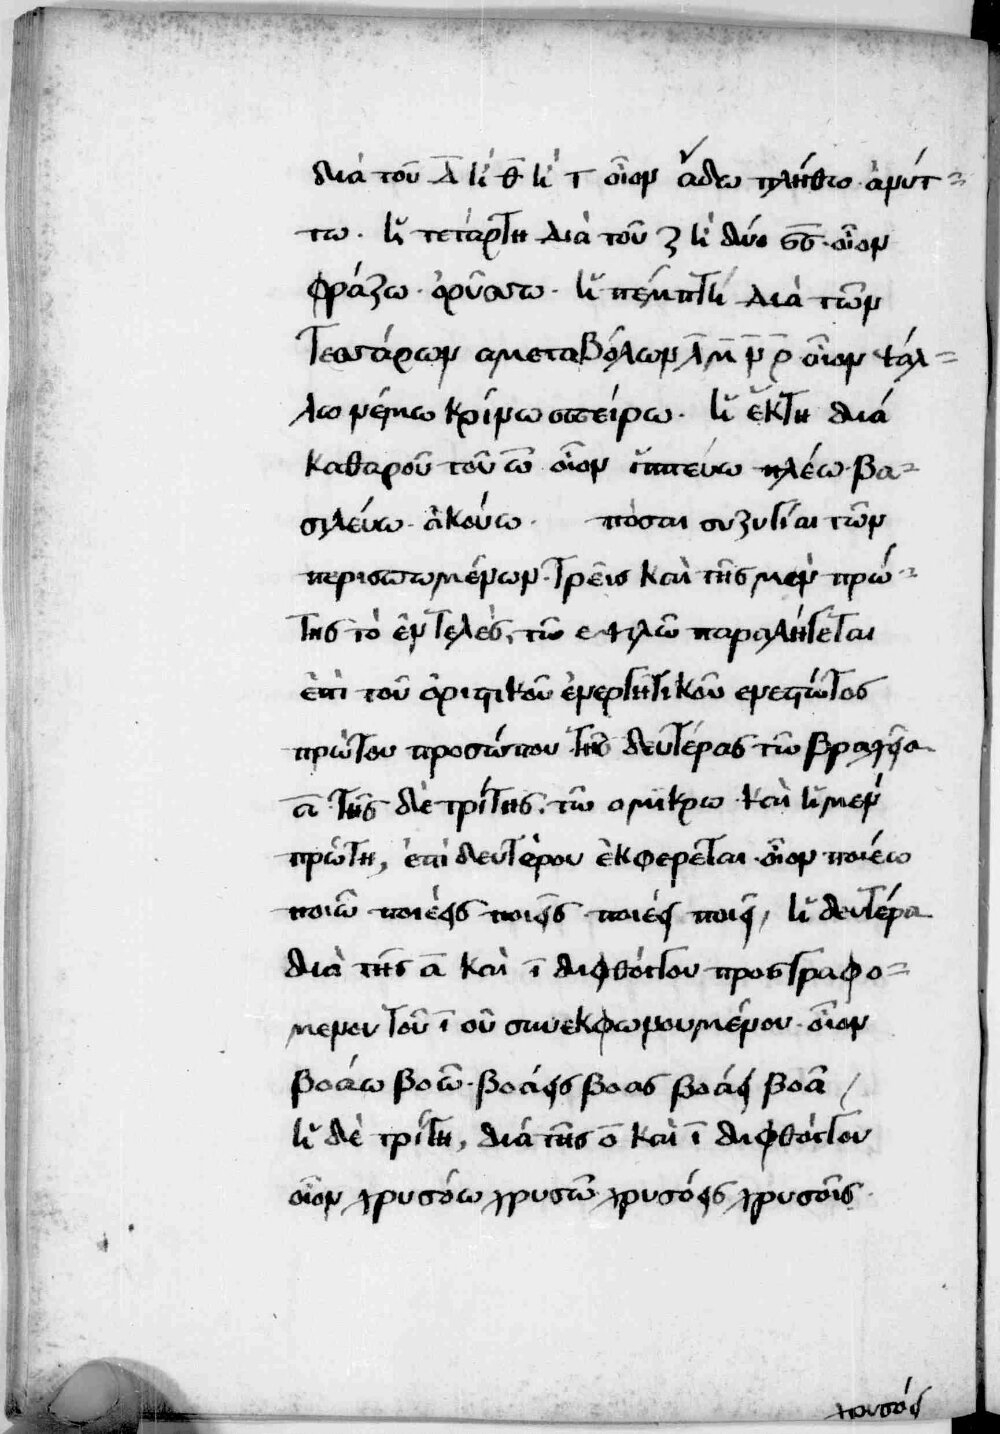 διὰ τοῦ δ̄ ἢ θ̄ ἢ τ οἷον ἄδω πλήθω· ἀρύτ=
τω· ἡ τετάρτη διὰ τοῦ ζ ἢ δύο σσ· οἷον
φράζω· ὀρύσσω· ἡ πέμπτη διὰ τῶν
τεσσάρων αμεταβόλων λ̄ μ̄ ν̄ ρ̄ οἷον ψάλ=
λω νέμω κρίνω σπείρω· ἡ ἕκτη διά
καθαροῦ τοῦ ω̄ οἷον ἱππεύω πλέω· βα=
σιλεύω· ἀκούω· πόσαι συζυγίαι τῶν
περισπωμένων· τρεῖς καὶ τῆς μὲν πρώ=
της τὸ ἐντελὲς, τῶ ε ψιλῶ παραλήγεται
ἐπὶ τοῦ ὁριστικοῦ ἐνεργητικοῦ ενεστῶτος
πρώτου προσώπου τῆς δευτέρας τῶ βραχεῖ
ᾱ τῆς δὲ τρίτης· τῶ ο μικρω· καὶ ἡ μὲν
πρώτη, ἐπὶ δευτέρου ἐκφερέται· οἷον ποιέω
ποιῶ ποιέεις ποιεῖς ποιέει ποιεῖ, ἡ δευτέρα
διὰ τῆς ᾱ καὶ ῑ διφθόγγου προσγραφο=
μενου τοῦ ῑ οὐ συνεκφωνουμένου· οἷον
βοάω βοῶ· βοάεις βοας βοάει βοᾶ /
ἡ δὲ τρίτη, διὰ τῆς ο̄ καὶ ῑ διφθόγγου
οἷον χρυσόω χρυσῶ χρυσόεις χρυσοῖς·
χρυσόει